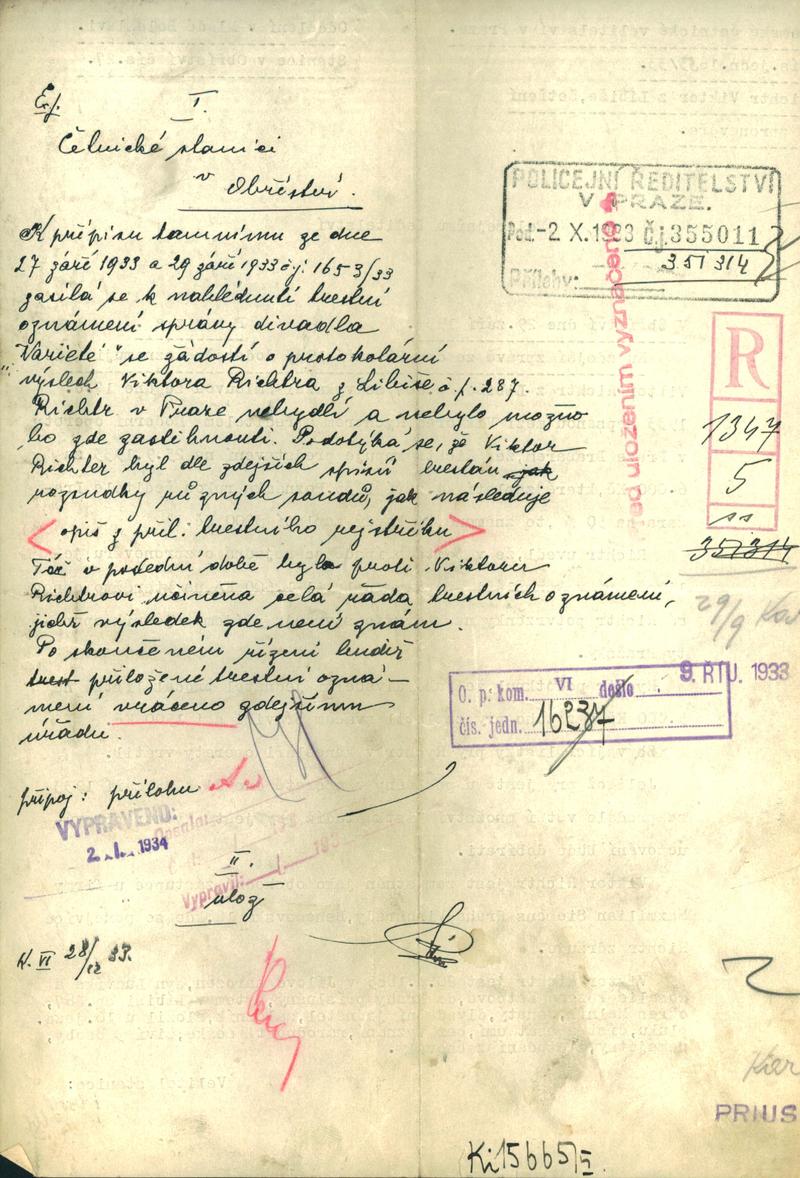 I.
Četnické stanici
v
Obříství.
K přípisu tamnímu ze dne
27 září 1933 a 29 září 1933 čj: 1653/33
zasílá se k nahlédnutí trestní
oznámení správy divadla
"Varieté" se žádostí o protokolární
výslech Viktora Richtra z Libiše č.p. 287.
Richtr v Praze nebydlí a nebylo možno
ho zde zastihnouti. Podotýká se, že Viktor
Richter byl dle zdejších spisů trestán jak
rozsudky různých soudů, jak následuje
< opis z příl. trestního rejstříku >
Též v poslední době byla proti Viktoru
Richtrovi učiněna celá řada trestních oznámení,
jichž výsledek zde není znám.
Po skončeném řízení budiž
trest přiložené trestní ozná-
mení vráceno zdejšímu
úřadu.
připoj: přílohu
VYPRAVENO:
2. I. 1934
Opsáno:
Vypravil:
II.
ulož
K. VI 28/12 33.
POLICEJNÍ ŘEDITELSTVÍ
V PRAZE.
Doš. -2 X. 1933 Čj. 355011
351314
Přílohy:
Před uložením vyznačeno
R
1347
5
351314
29/9
9. ŘÍJ. 1933
O. p. kom. VI došlo
čís. jedn. 16237
PRIUS
Ki 15665/5